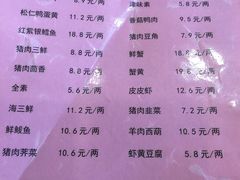 8.9 元/两
松仁鸭蛋黄 11.2 元/两
红紫银鳕鱼 18.8 元/两
猪肉三鲜 8.9 元/两
猪肉茴香 8.0 元/两
全素 5.6 元/两
海三鲜 11.2 元/两
鲜鲅鱼 10.6 元/两
猪肉荠菜 10.6 元/两
5.8 元/两
香菇鸭肉 9.5 元/两
猪肉豆角 7.9 元/两
鲜蟹 18.8 元/两
蟹黄 19.8 元/两
皮皮虾 12.6 元/两
猪肉韭菜 7.2 元/两
羊肉西葫 10.5 元/两
虾黄豆腐 5.8 元/两